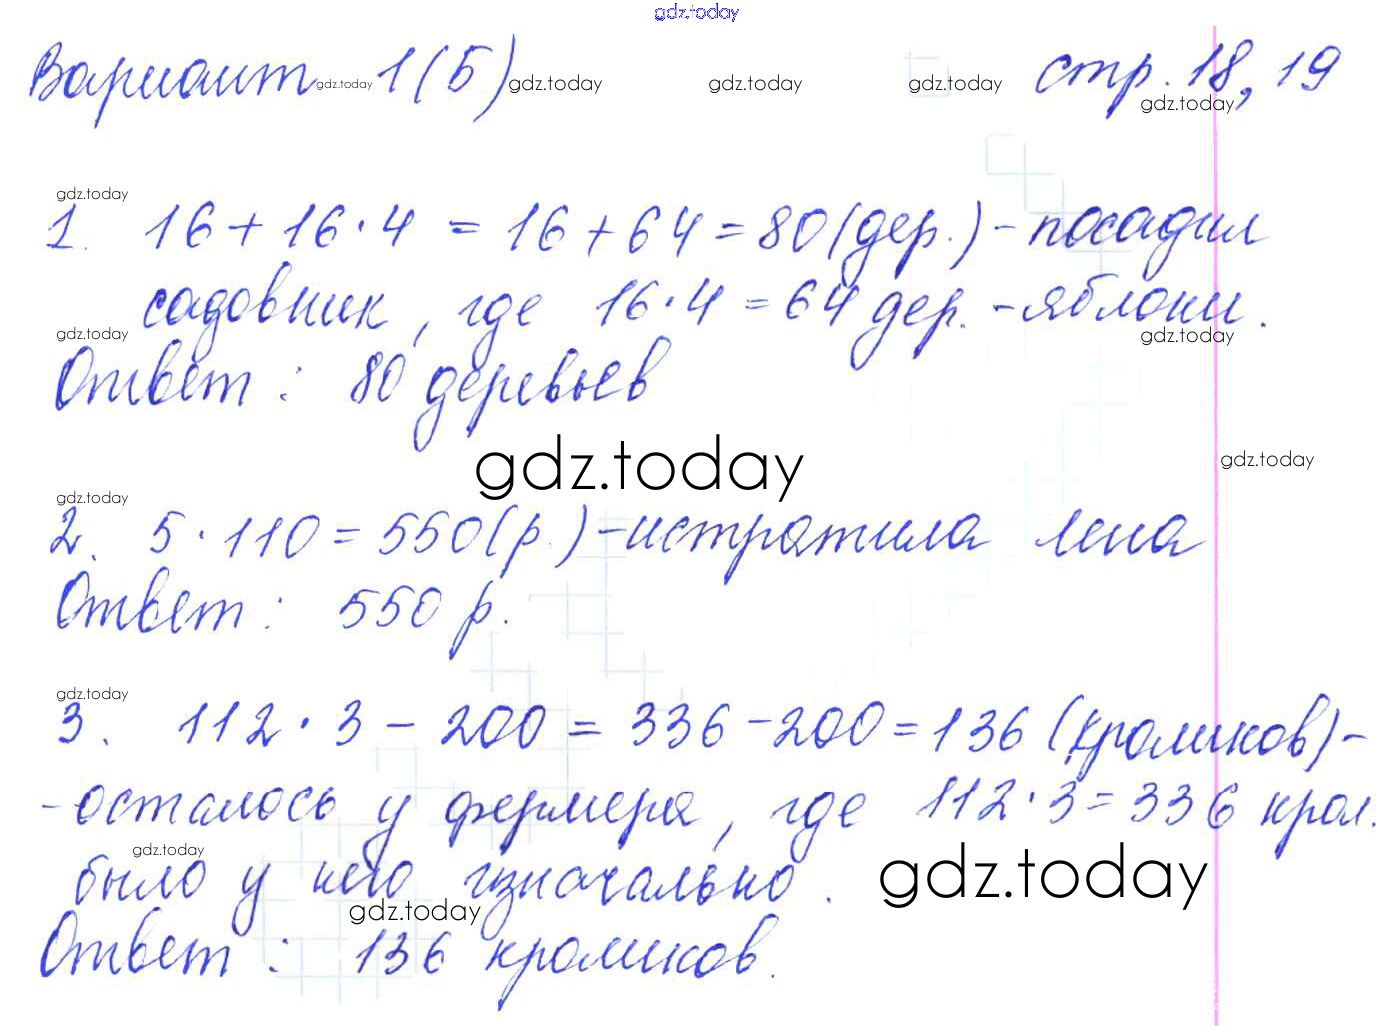 gdz.today
Вариант gdz.today 1(Б) gdz.today gdz.today gdz.today стр. 18, 19
gdz.today
gdz.today
1. 16 + 16 · 4 = 16 + 64 = 80 (дер.) - посадил
садовник, где 16 · 4 = 64 дер. - яблони.
gdz.today gdz.today
Ответ: 80 деревьев
gdz.today gdz.today
gdz.today
2. 5 · 110 = 550 (р.) - истратила Лена
Ответ: 550 р.
gdz.today
3. 112 · 3 - 200 = 336 - 200 = 136 (кроликов) -
- осталось у фермера, где 112 · 3 = 336 крол.
gdz.today
было у него изначально. gdz.today
gdz.today
Ответ: 136 кроликов.